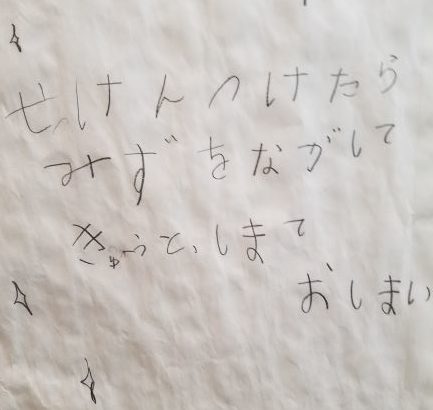 せっけんつけたら
みずをながして
きゅうと、しまて
おしまい